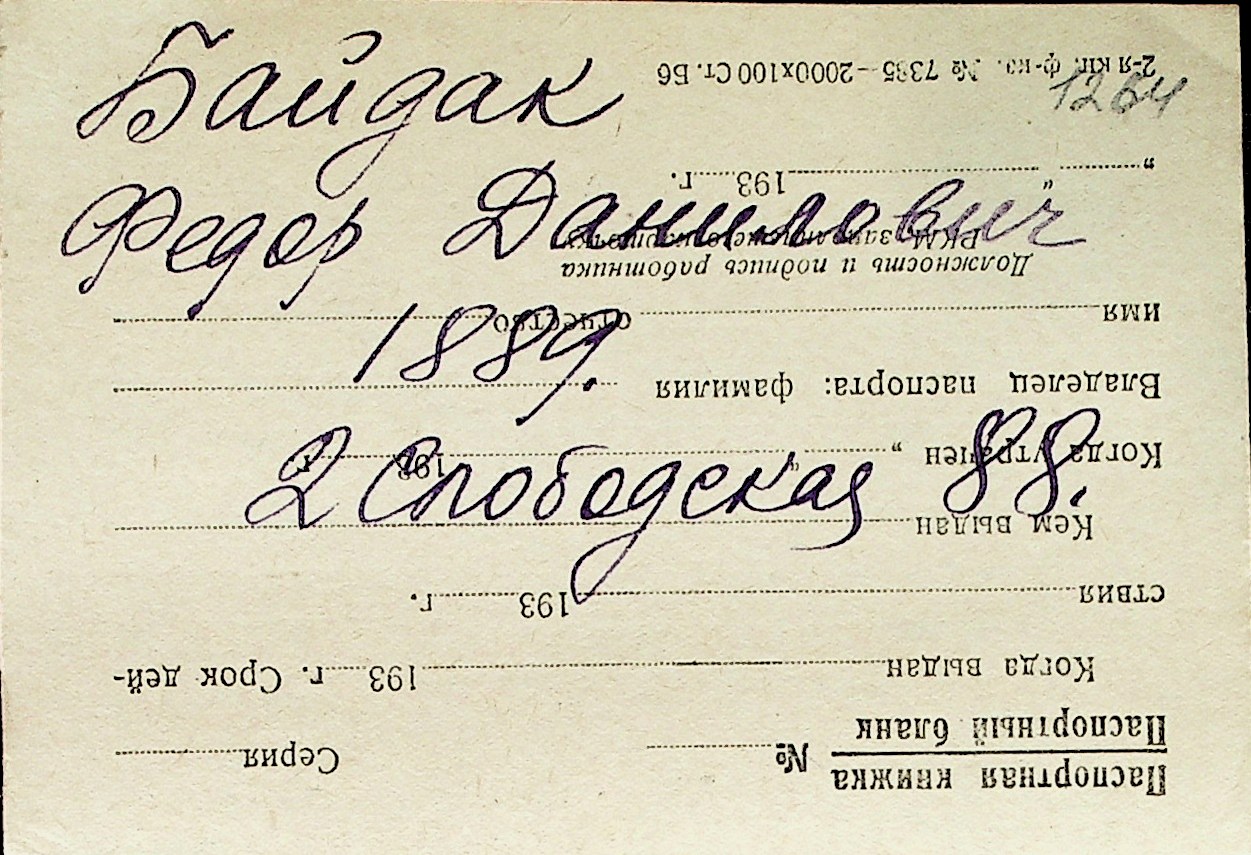 Байдак
Федор Данилович
1889.
2 Слободская 88.
1264
Паспортная книжка
Паспортный бланк
№ Серия
Когда выдан 193 г. Срок дей-
ствия 193 г.
Кем выдан
Когда утрачен „ “ 193 г.
Владелец паспорта: фамилия
имя отчество
Должность и подпись работника
РКМ, заполнявшего карточку
„ “ 193 г.
2-я кн. ф-ка. № 7385—2000х100 Ст. Б6